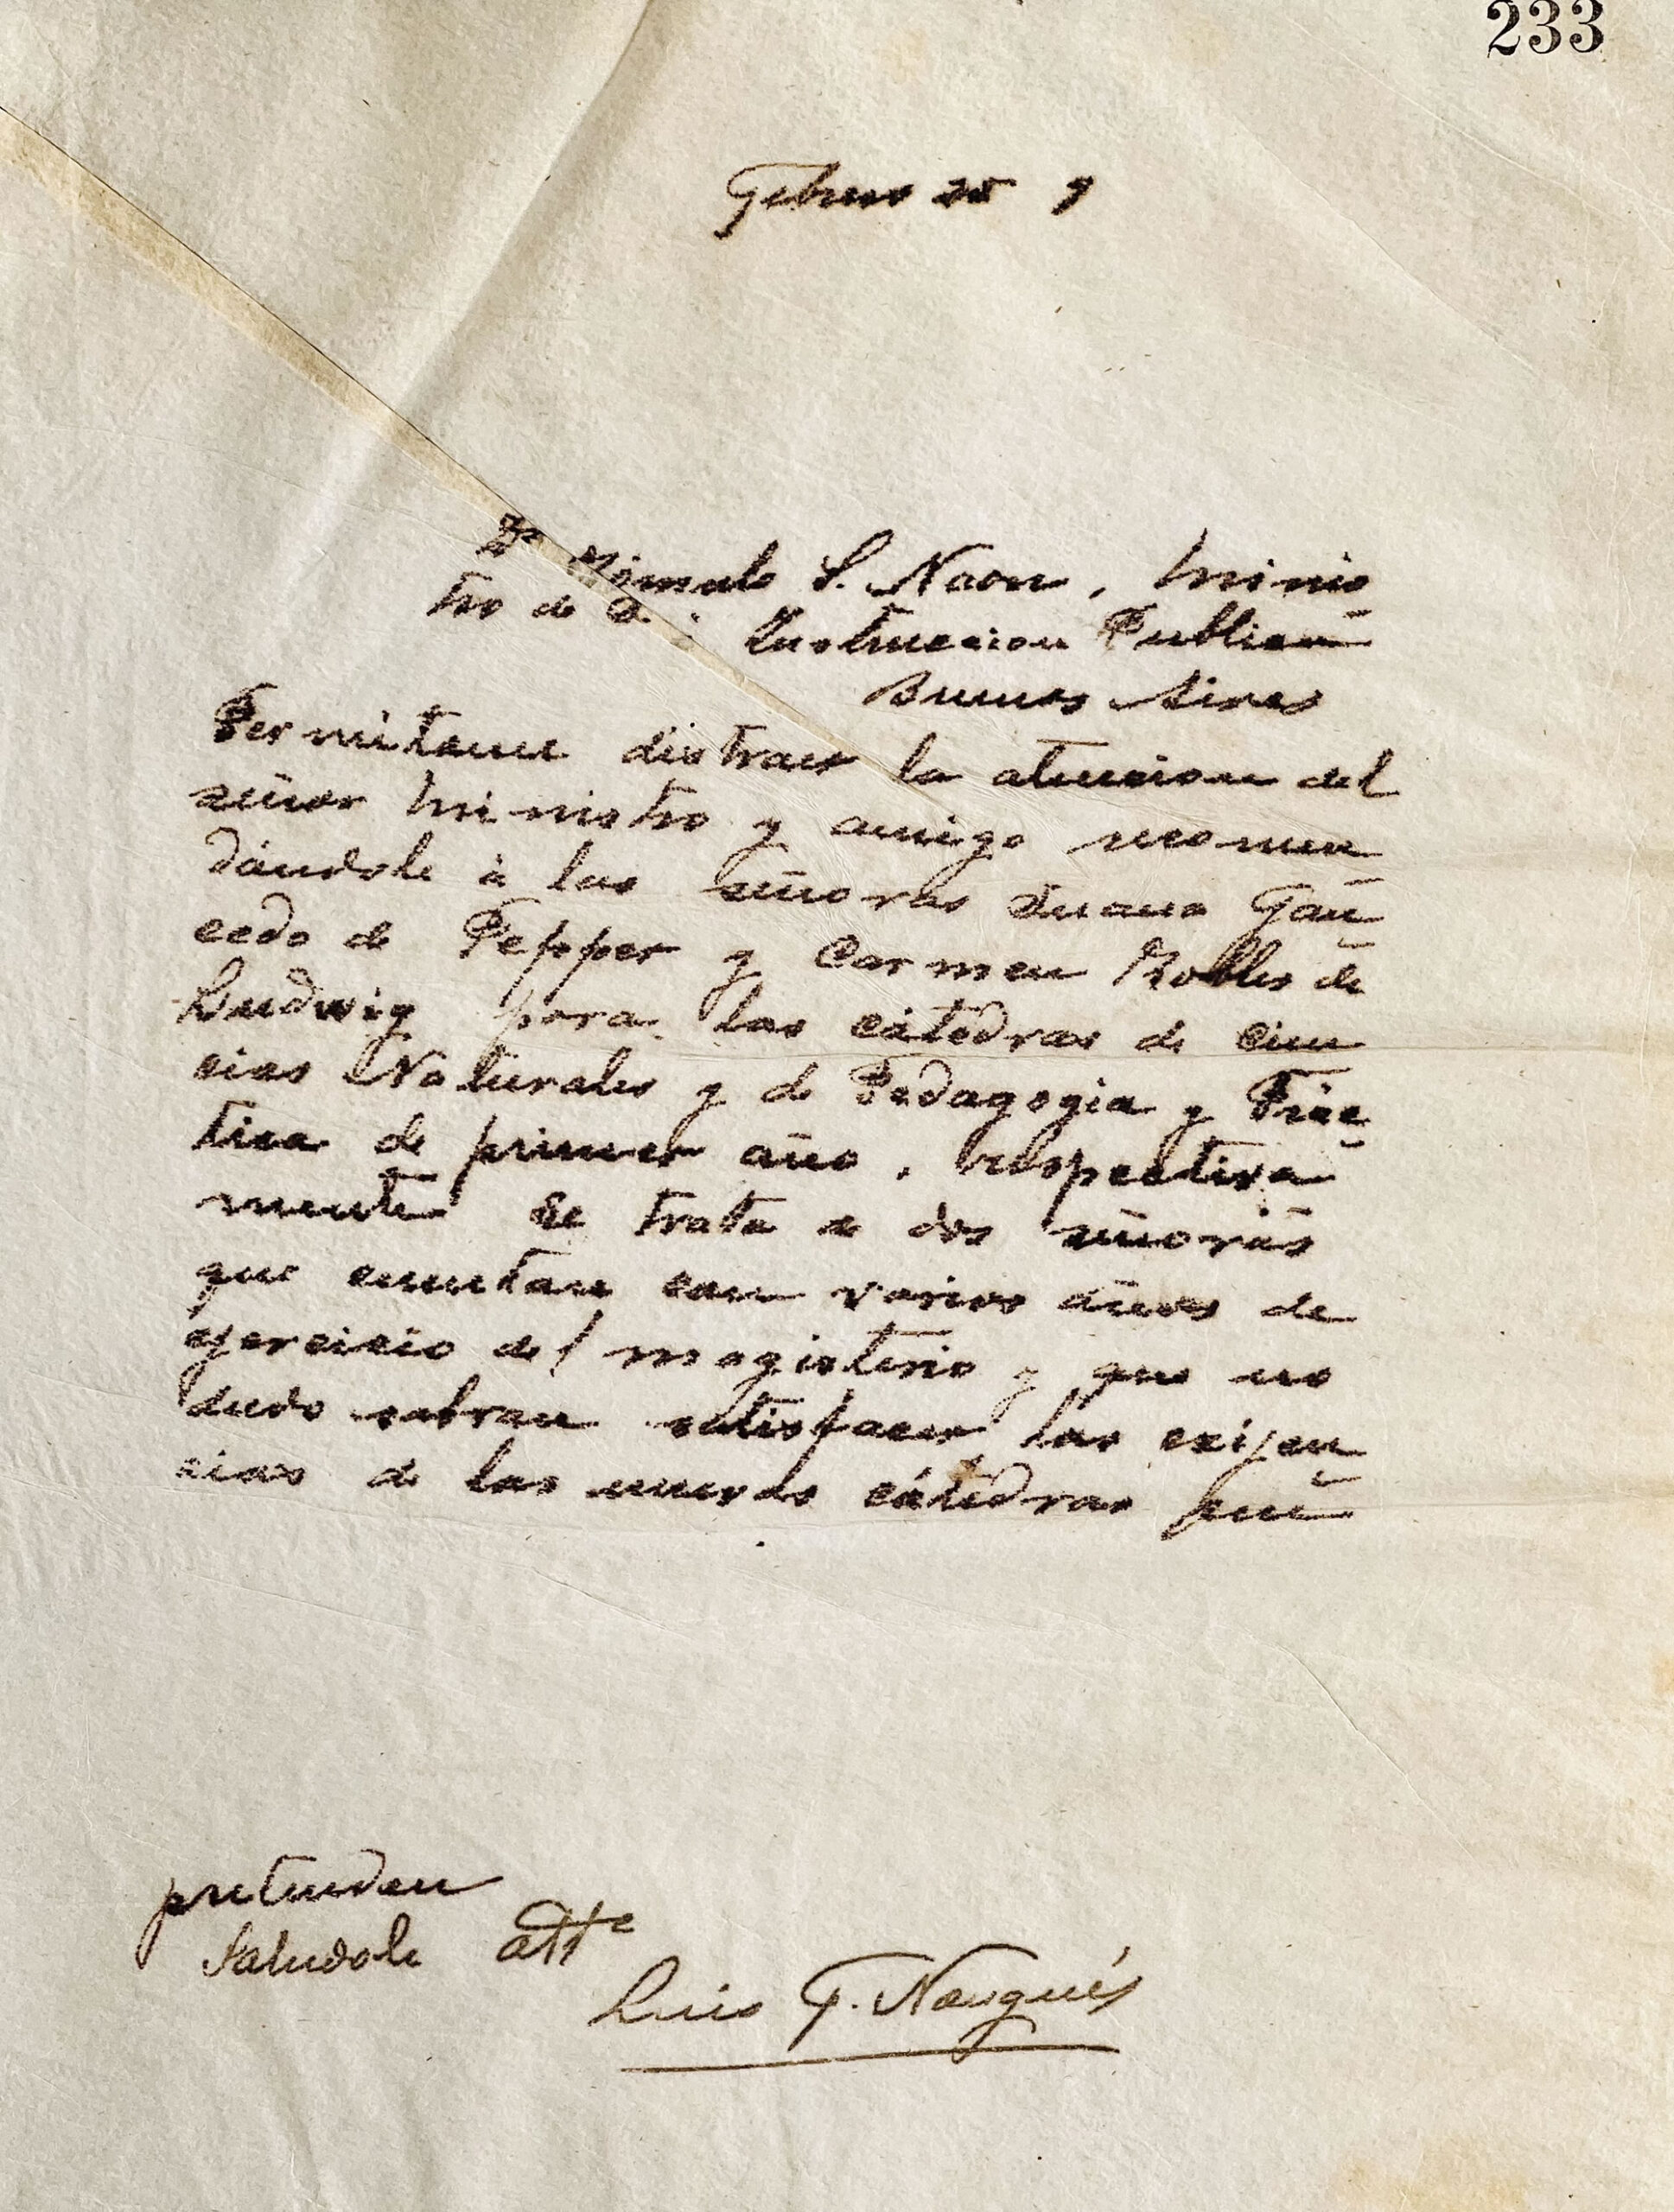 233
Febrero 25 9
Dr Rómulo S. Naon, Minis
tro de G. Instruccion Publica
Buenos Aires
Permitame distraer la atencion del
señor Ministro y amigo recomen
dándole á las señoras Juana Gau
cedo de Pepper y Carmen Robles de
Ludwig para las cátedras de Cien
cias Naturales y de Pedagogia y Prác
tica de primer año, respectiva
mente Se trata de dos señoras
que cuentan con varios años de
ejercicio del magisterio y que no
dudo sabran satisfacer las exijen
cias de las nuevas cátedras que
pretenden
Saludole atte
Luis F. Nougués